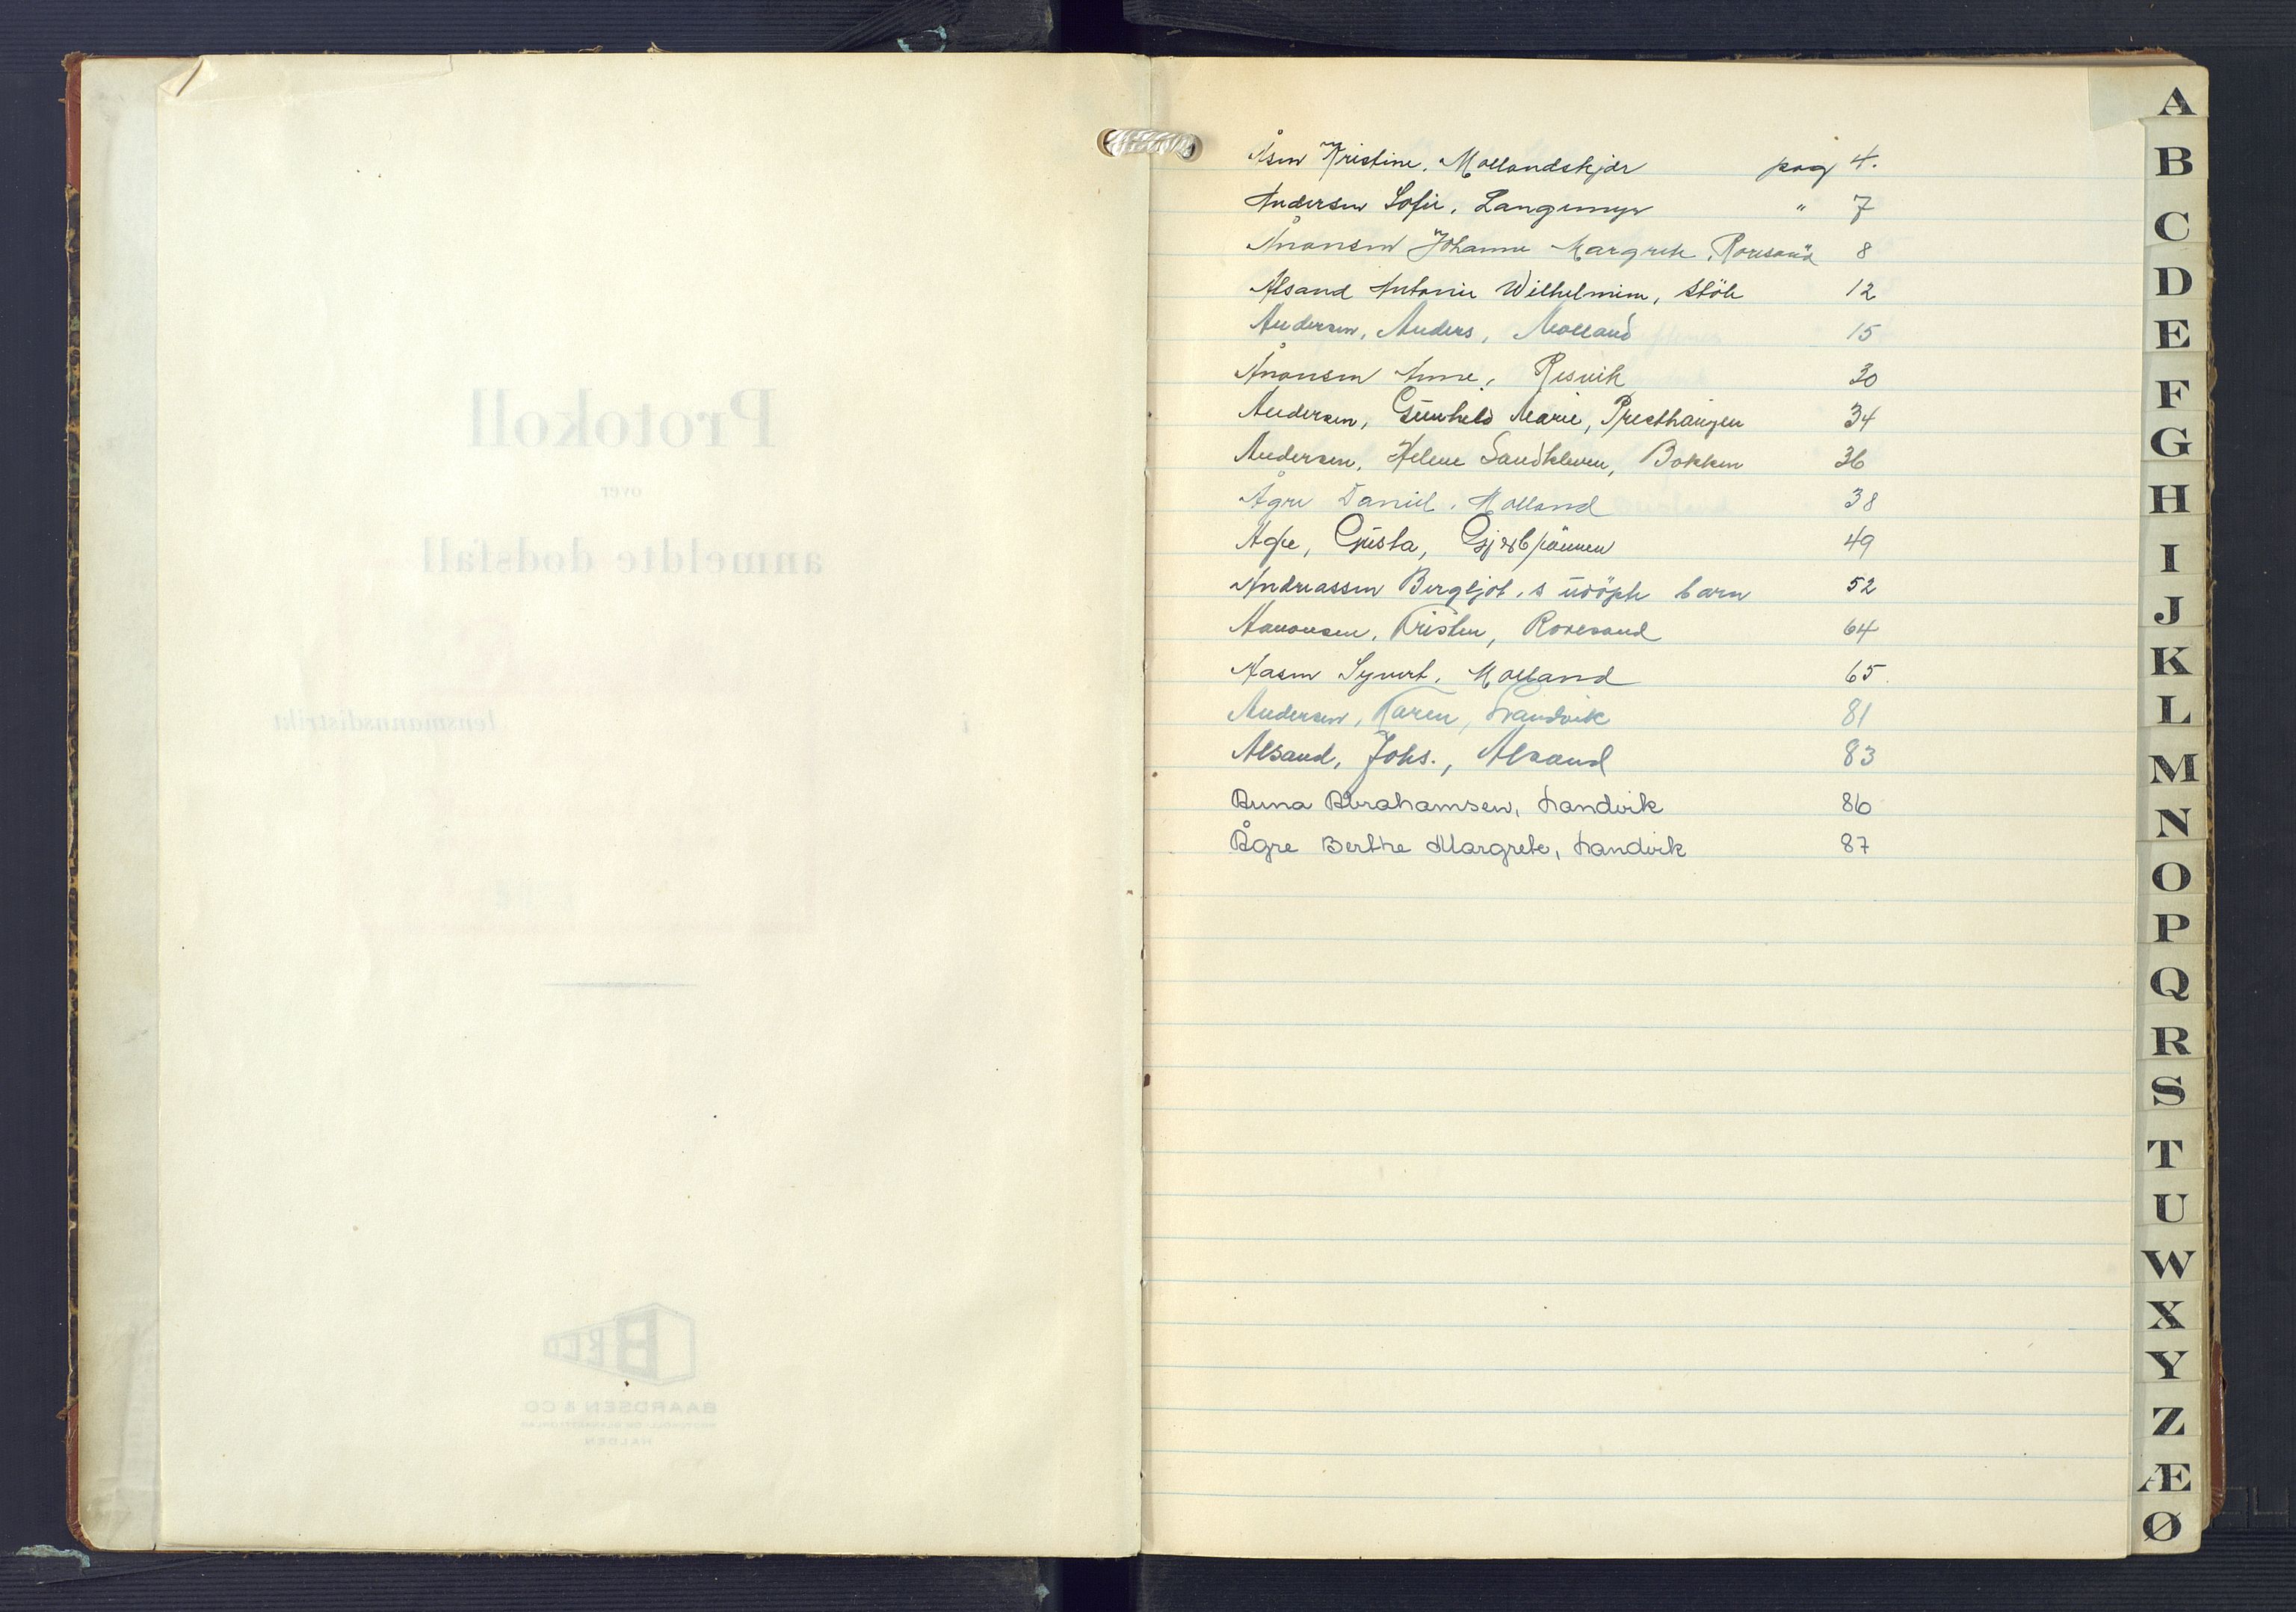 Protokoll
over
anmeldte dødsfall
i lensmannsdistrikt
BAARDSEN & CO
HALDEN
Åsen Kristine, Mollandskjær pag 4.
Andersen Sofie, Langemyr " 7
Ånonsen Johanne Margrete, Roresand 8
Alsand Antonie Wilhelmine, Støle 12
Andersen, Anders, Molland 15
Ånonsen Anne, Resvik 30
Andersen, Gunhild Marie, Presthaugen 34
Andersen, Helene Sandkleven, Bokken 36
Ågre Daniel, Molland 38
Agre, Gusta, 49
Andreassen Bergljot, s udöpte barn 52
Aanonsen, Kristen, Roresand 64
Aasen Syvert, Molland 65
Andersen, Karen, Landvik 81
Alsand, Johs., Alsand 83
Anna Abrahamsen, Landvik 86
Ågre Berthe Margrete, Landvik 87
A
B
C
D
E
F
G
H
I
J
K
L
M
N
O
P
Q
R
S
T
U
W
X
Y
Z
Æ
Ø